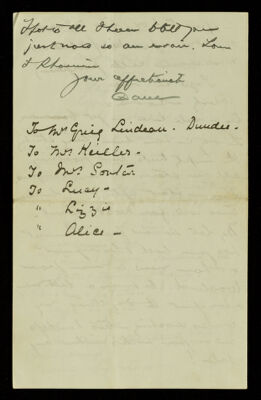 to all I have told you
just now so au revoir. Love
to
Your affectionate

To Mr Greig Lindean - Dundee -
To Mrs Keiller -
To Mrs Soutar
To Lucy -
" Lizzie
" Alice -